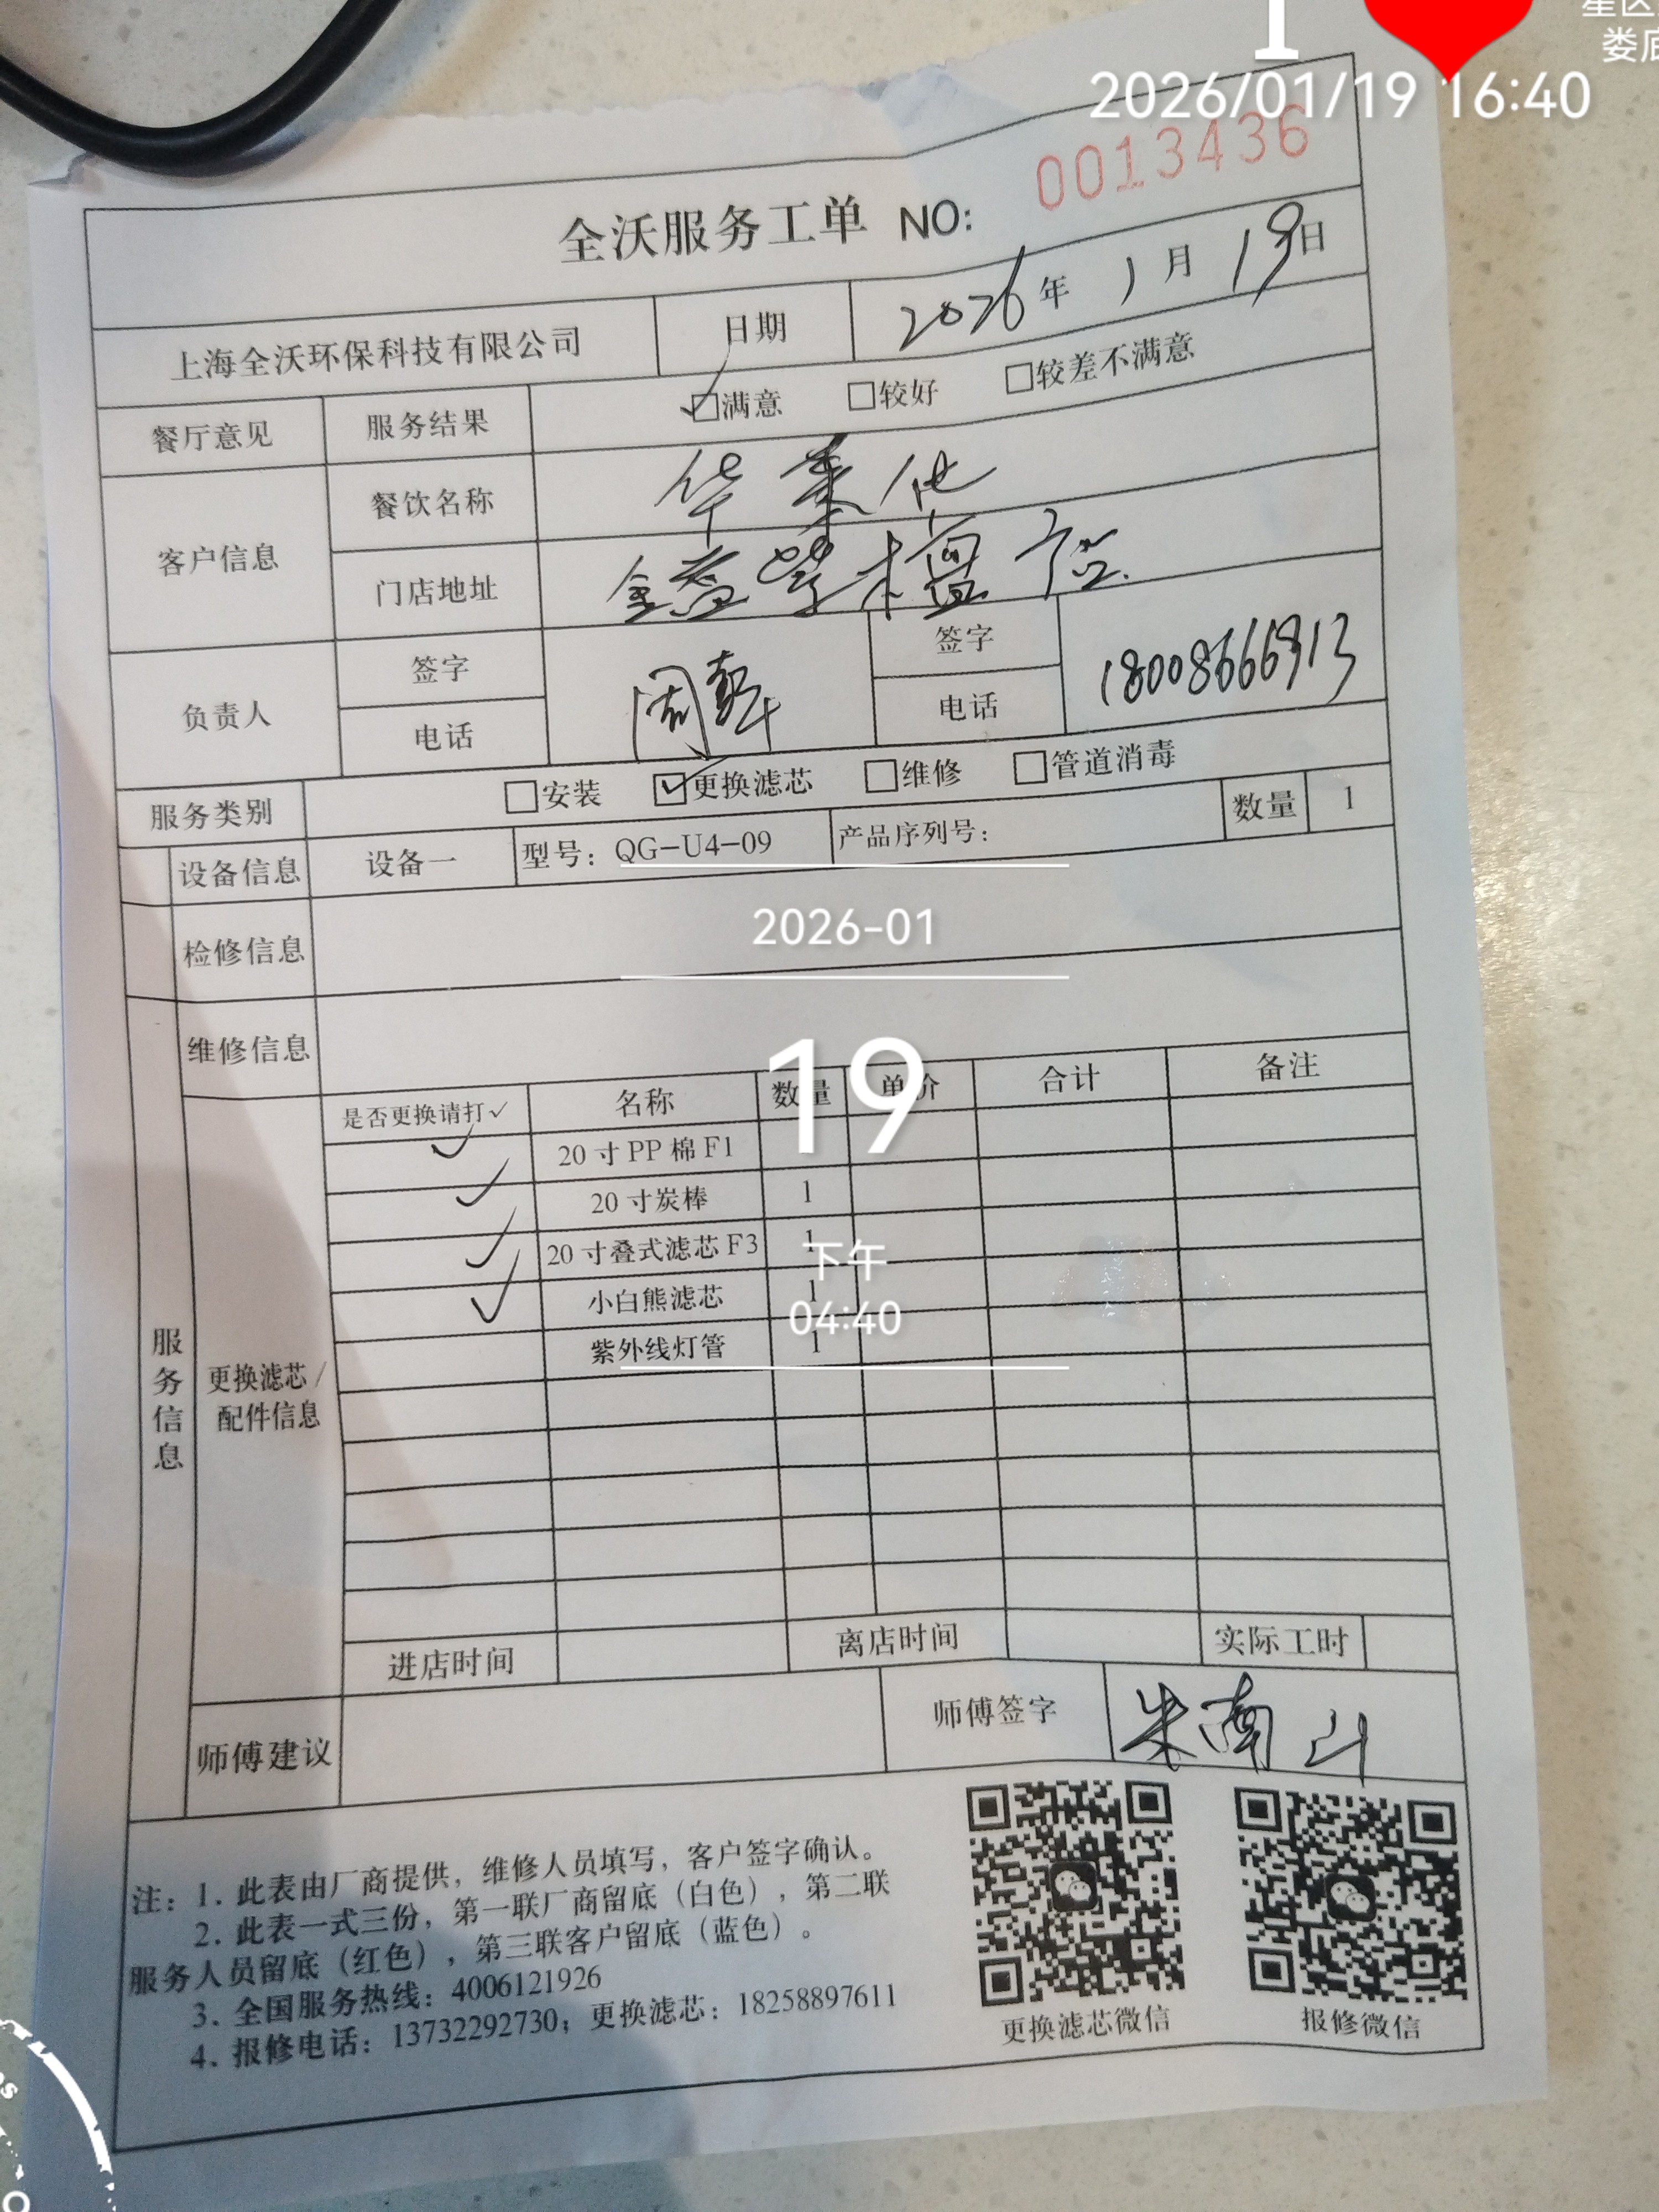 I
星区
娄底
2026/01/19 16:40
全沃服务工单 NO: 0013436
上海全沃环保科技有限公司 日期 2026年 1月 19日
餐厅意见 服务结果 ☑满意 □较好 □较差不满意
客户信息 餐饮名称 华莱仕
门店地址 鑫紫檀店
负责人 签字 电话 周 签字 电话 18008666913
服务类别 □安装 ☑更换滤芯 □维修 □管道消毒
设备信息 设备一 型号：QG-U4-09 产品序列号： 数量 1
检修信息
2026-01
维修信息
19
是否更换请打✓ 名称 数量 单价 合计 备注
✓ 20寸PP棉F1
✓ 20寸炭棒 1
✓ 20寸叠式滤芯F3 1
下午
✓ 小白熊滤芯 1
04:40
紫外线灯管 1
服务信息
更换滤芯/
配件信息
进店时间 离店时间 实际工时
师傅建议 师傅签字 朱南山
注：1. 此表由厂商提供，维修人员填写，客户签字确认。
2. 此表一式三份，第一联厂商留底（白色），第二联
服务人员留底（红色），第三联客户留底（蓝色）。
3. 全国服务热线：4006121926
4. 报修电话：13732292730；更换滤芯：18258897611
更换滤芯微信
报修微信